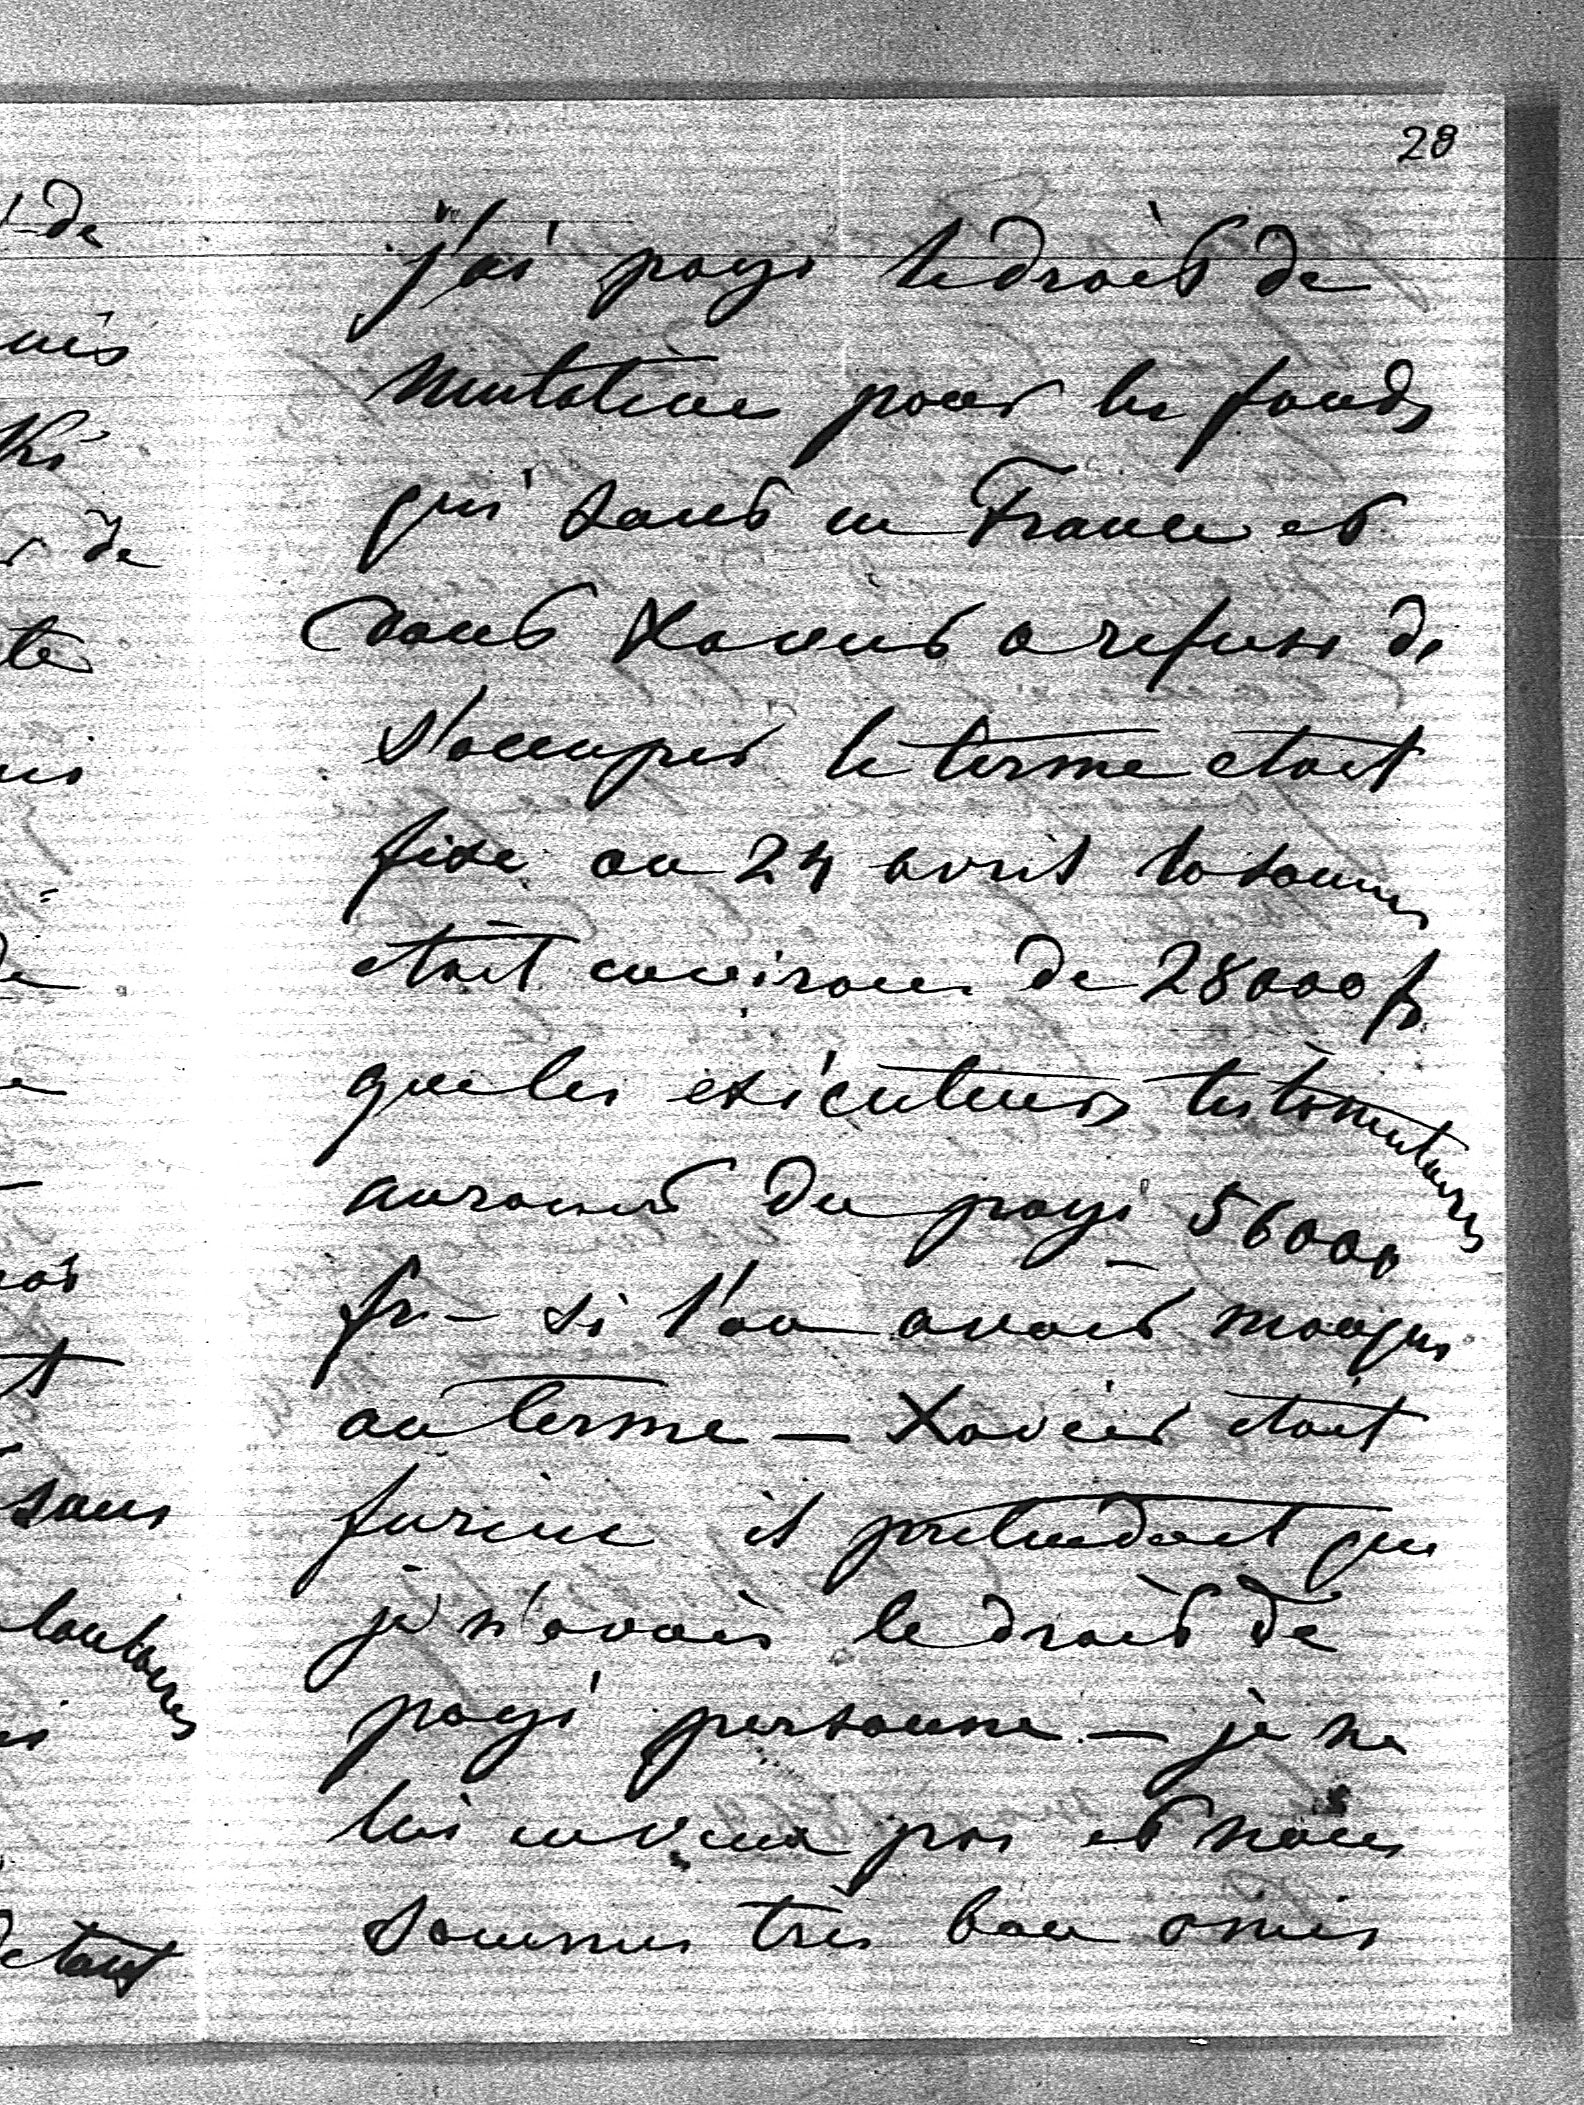 28
j'ai payé le droit de
mutation pour les fonds
qui sont en France et
dont Xavier a refusé de
s'occuper le terme etait
fixe au 24 avril la somme
etait environ de 28000 fr
que les exécuteurs testamentaires
auroient du payé 56000
fr – si l'on avoit manqué
au terme – Xavier etait
furieux il pretendait que
je n'avais le droit de
payé personne – je ne
lui en veux pas et nous
sommes très bon amis